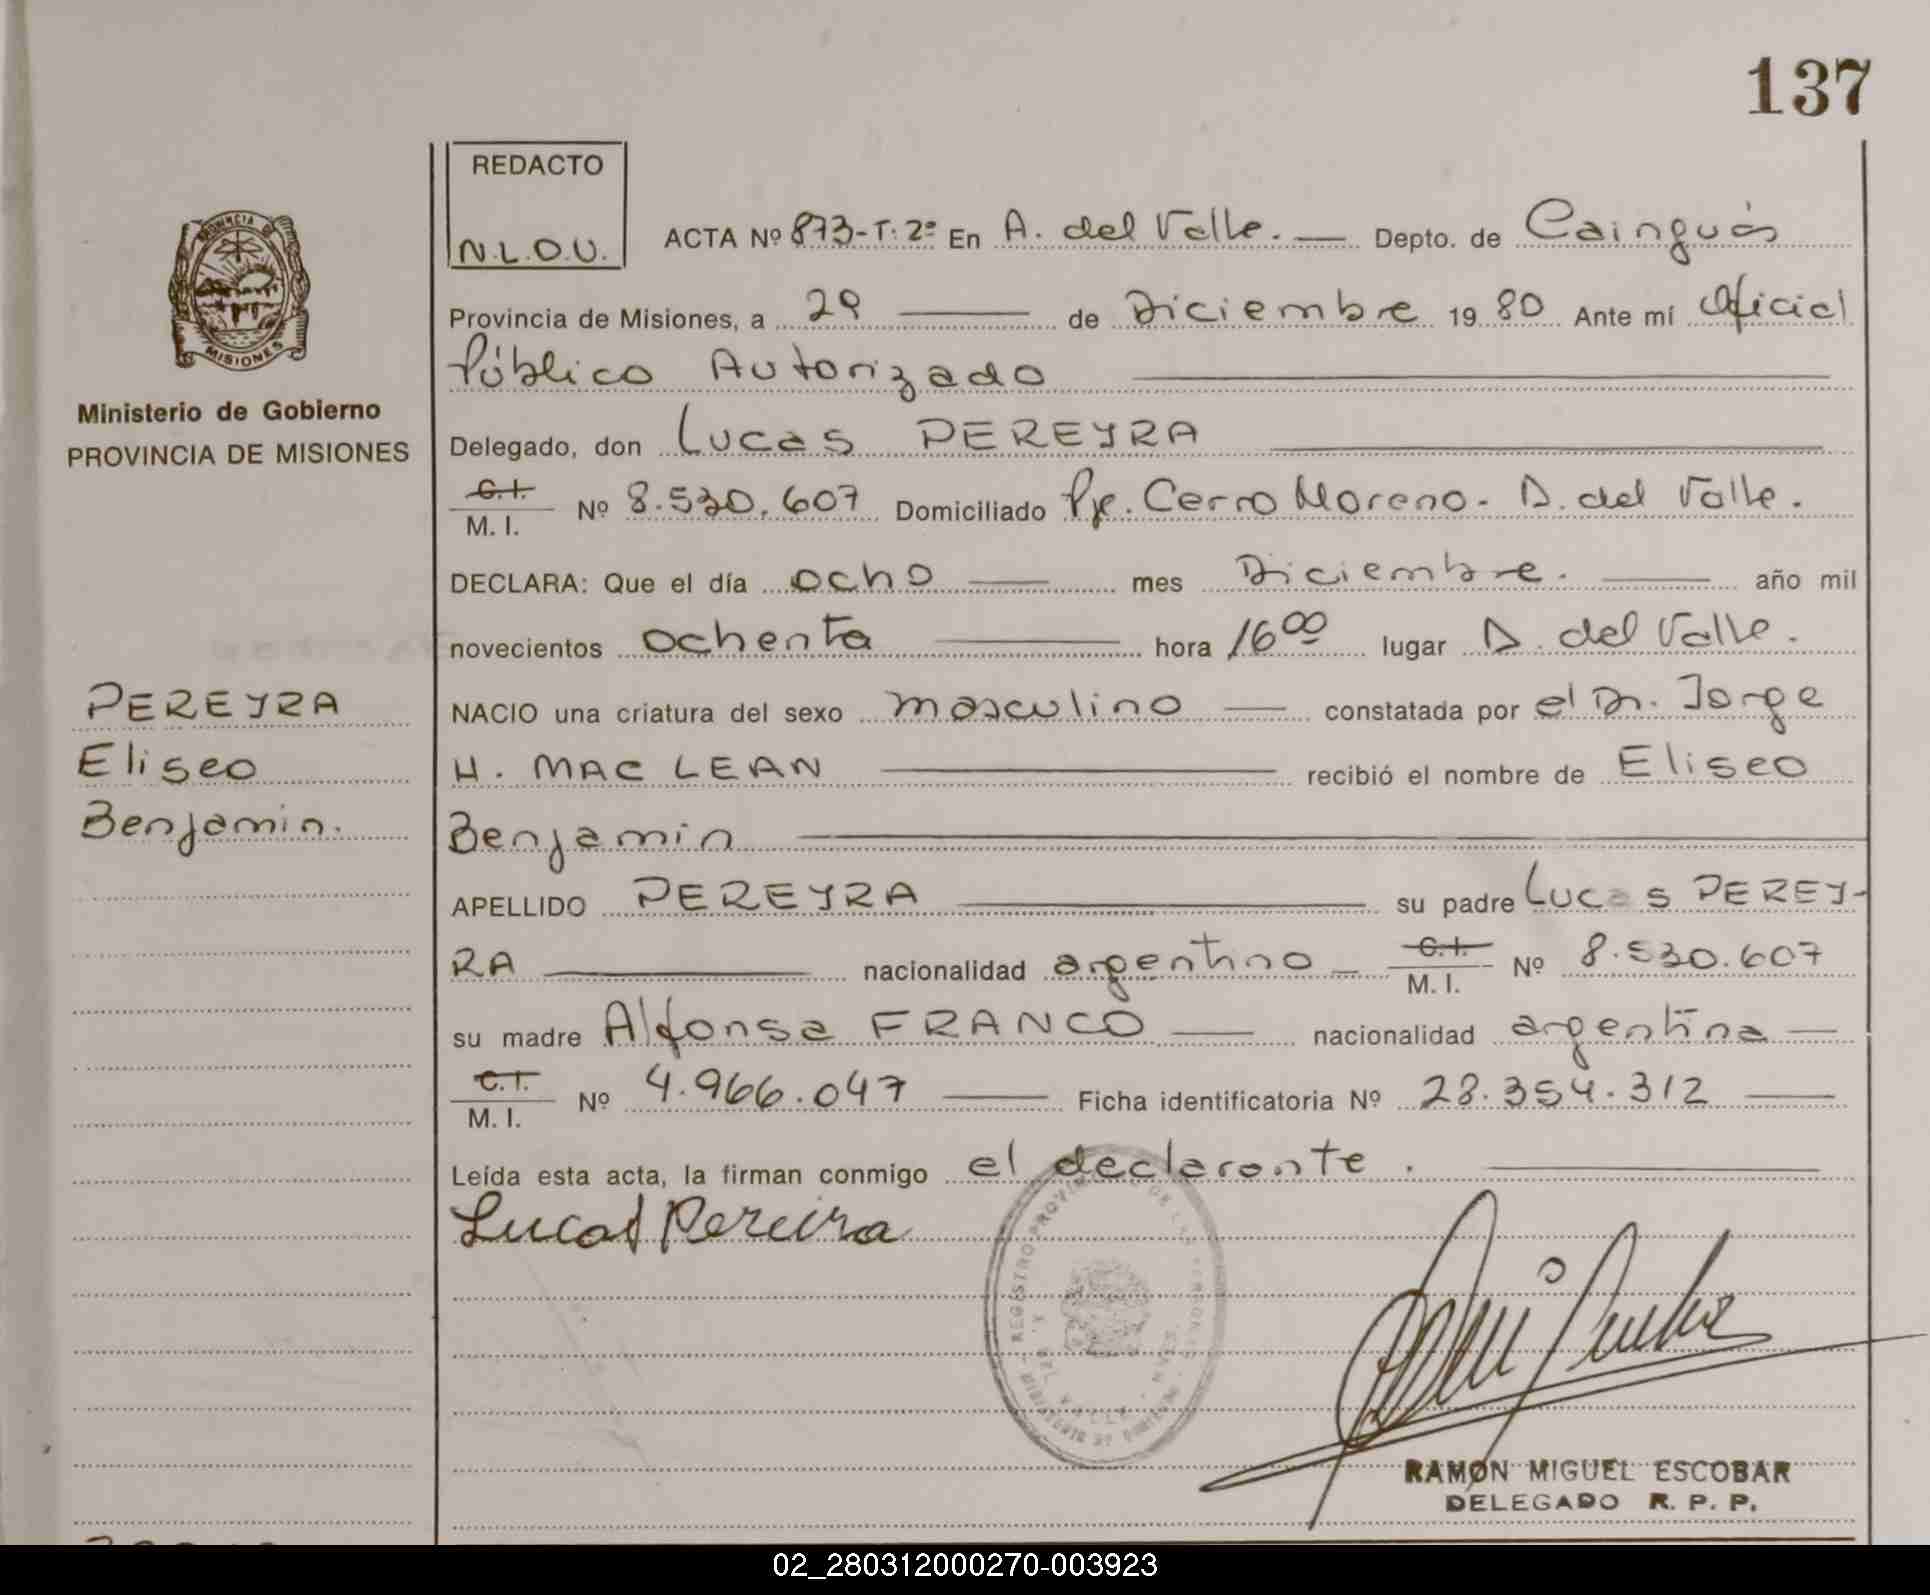 137
REDACTO
N.L.O.U.
ACTA Nº 873-T. 2º En A. del Valle. Depto. de Cainguás
Provincia de Misiones, a 29 de Diciembre 19 80 Ante mí Oficial
Público Autorizado
Delegado, don Lucas PEREYRA
C.I. M. I. Nº 8.530.607 Domiciliado Pje. Cerro Moreno - A. del Valle.
DECLARA: Que el día ocho mes Diciembre. año mil
novecientos ochenta hora 16 00 lugar A. del Valle.
NACIO una criatura del sexo masculino constatada por el Dr. Jorge
H. MAC LEAN recibió el nombre de Eliseo
Benjamin
APELLIDO PEREYRA su padre Lucas PEREY-
RA nacionalidad argentino C.I. M. I. Nº 8.530.607
su madre Alfonsa FRANCO nacionalidad argentina
C.I. M. I. Nº 4.966.047 Ficha identificatoria Nº 28.354.312
Leída esta acta, la firman conmigo el declarante.
Lucas Pereira
RAMON MIGUEL ESCOBAR
DELEGADO R. P. P.
PROVINCIA DE
MISIONES
Ministerio de Gobierno
PROVINCIA DE MISIONES
PEREYRA
Eliseo
Benjamin.
02_280312000270-003923